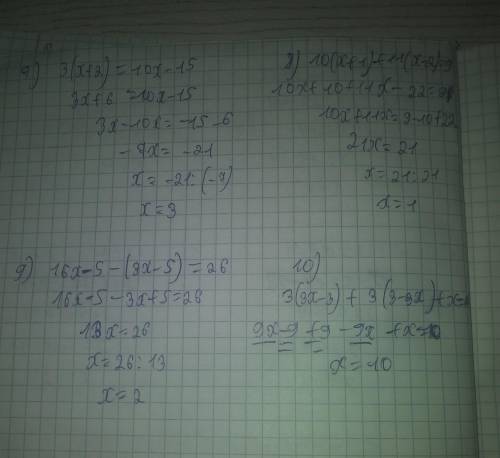 7) 3(x+2) = 10x-15
3x+6 = 10x-15
3x-10x = -15-6
-7x = -21
x = -21:(-7)
x = 3
8) 10(x+1)+11(x-2)=9
10x+10+11x-22=9
10x+11x=9-10+22
21x=21
x=21:21
x=1
9) 16x-5-(3x-5)=26
16x-5-3x+5=26
13x=26
x=26:13
x=2
10)
3(3x-3) + 3(3-3x)+x
9x-9+9-9x+x
x=10